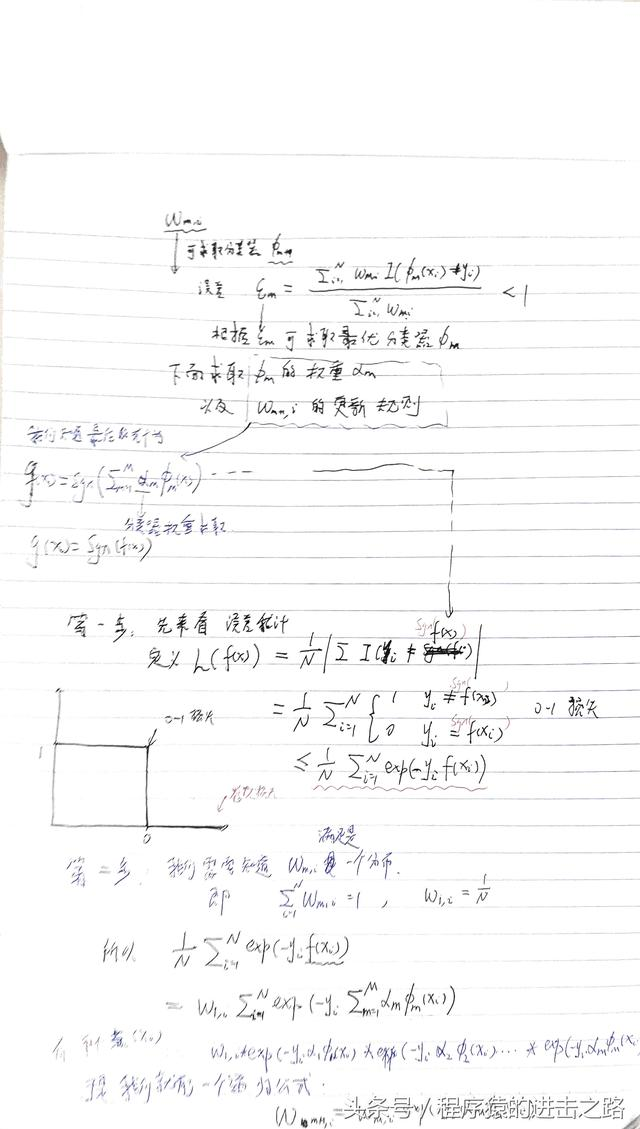 Wm,i
可求取分类器 ϕm
误差 εm = Σi=1^N wmi I(ϕm(xi)≠yi) / Σi=1^N wmi < 1
根据 εm 可求取最优分类器 ϕm
下面求取 ϕm 的权重 αm
以及 Wm,i 的更新规则
我们知道最后
g(x) = Sgn(Σm=1^M αm ϕm(x)) ----
分类器权重求取
g(x) = Sgn(f(x))
第一步: 先来看误差统计
定义 L(f(x)) = 1/N |Σ I(yi ≠ Sgn(f(x))|
= 1/N Σi=1^N { 1 yi ≠ Sgn(f(xi))
0 yi = Sgn(f(xi)) 0-1 损失
≤ 1/N Σi=1^N exp(-yi f(xi))
0-1 损失
1
指数损失
0
第二步: 我们需要知道 Wm,i 满足是一个分布.
即 Σi=1^N Wm,i = 1, W1,i = 1/N
所以 1/N Σi=1^N exp(-yi f(xi))
= W1,i Σi=1^N exp(-yi Σm=1^M αm ϕm(xi))
W1,i*exp(-yi α1 ϕ1(xi)) * exp(-yi α2 ϕ2(xi)) .... * exp(-yi αm ϕm(xi
我们就有一个递归公式:
Wm+1,i =
头条号 / 程序猿的进击之路